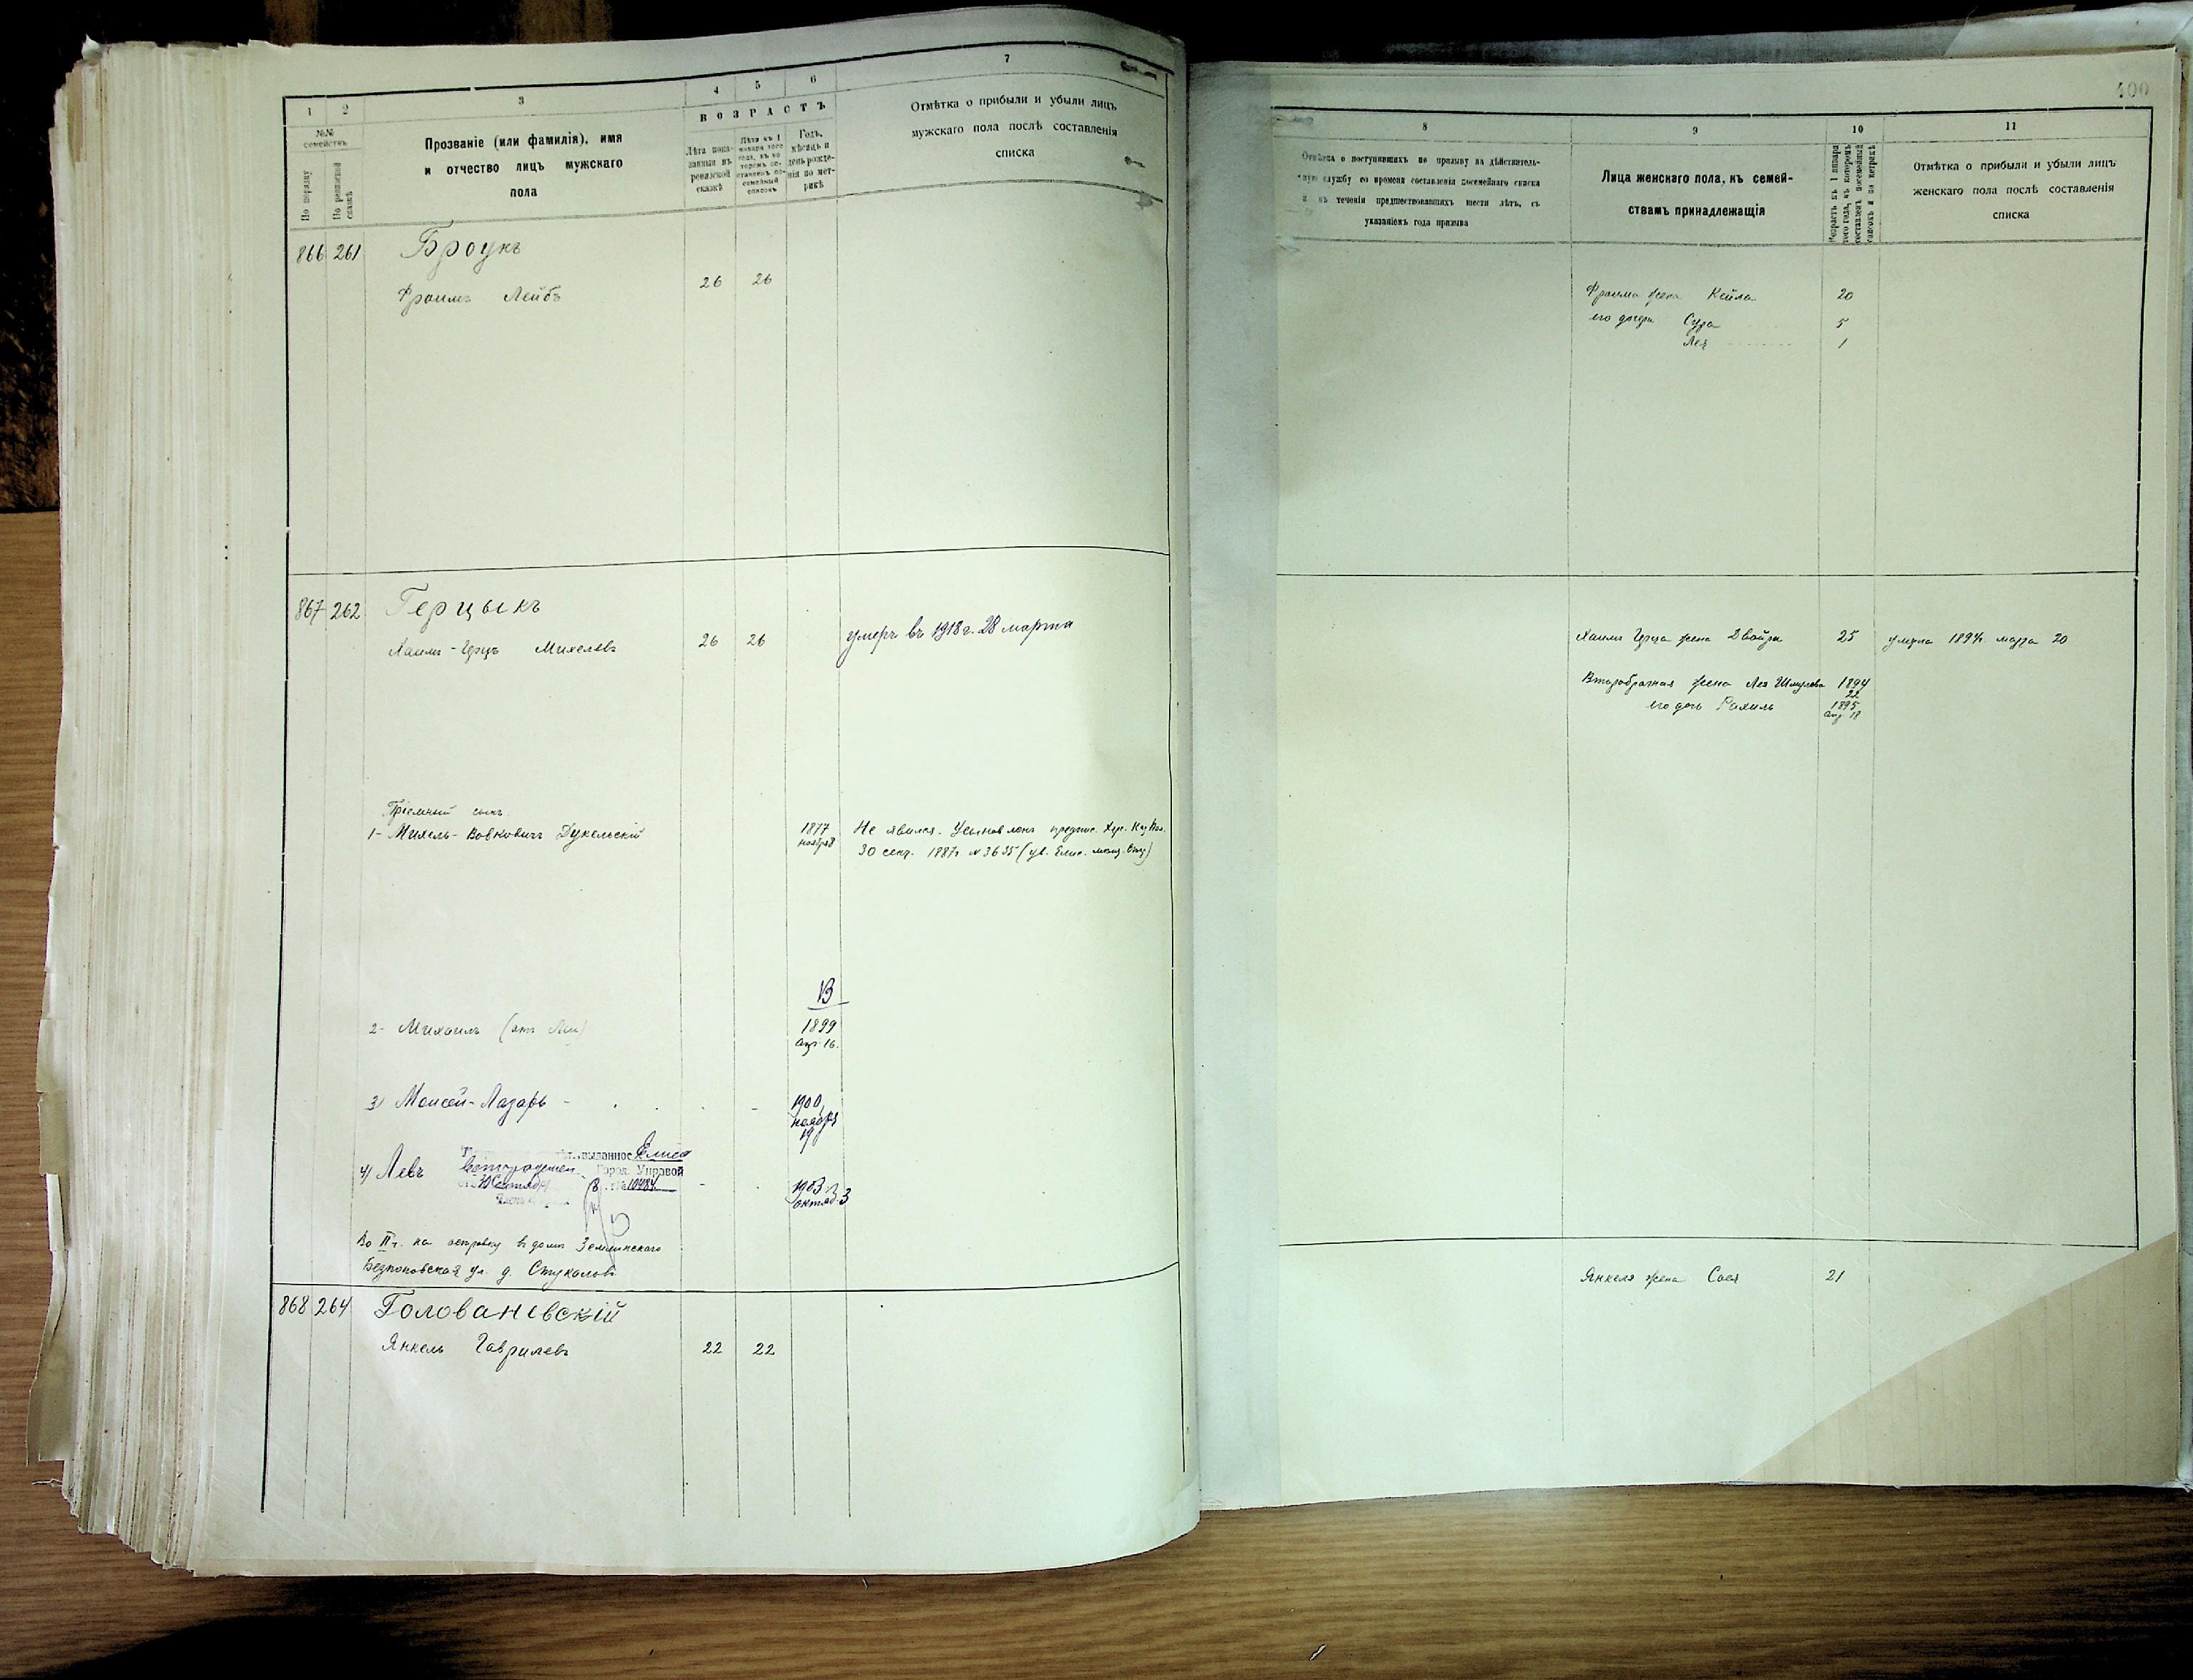 1 2 3 4 5 6 7
№№ семействъ
По порядку
По ревизской сказкѣ
Прозваніе (или фамилія), имя
и отчество лицъ мужскаго
пола
ВОЗРАСТЪ
Лѣта пока-
занныя въ
ревизской
сказкѣ
Лѣта къ 1
января того
года, въ ко-
торомъ со-
ставленъ по-
семейный
списокъ
Годъ,
мѣсяцъ и
день рожде-
нія по мет-
рикѣ
Отмѣтка о прибыли и убыли лицъ
мужскаго пола послѣ составленія
списка
866 261 Броунъ
Фроимъ Лейбъ 26 26
867 262 Герцыкъ
Хаимъ-Герцъ Михелевъ 26 26 умеръ въ 1918 г. 28 марта
Пріемный сынъ
1- Михель-Вовковичъ Дукельскій 1877 ноября 8 Не явился. Усыновленъ предпис. Хер. Каз. Пал.
30 сент. 1887 г. № 3635
В
2- Михаилъ (отъ Леи) 1899
Апр. 16.
3) Моисей-Лазарь - 1900,
ноября
19
выданное Елиса
4) Левъ Город. Управой
№ 10484 1903 г.
октяб. 3
Во II ч. на островку въ домѣ Землинскаго
Безпоповская ул. д. Стукалова
868 264 Голованевскій
Янкель Гаврилевъ 22 22
400
8 9 10 11
Отмѣтка о поступившихъ по призыву на дѣйствитель-
ную службу со времени составленія посемейнаго списка
и въ теченіи предшествовавшихъ шести лѣтъ, съ
указаніемъ года призыва
Лица женскаго пола, къ семей-
ствамъ принадлежащія
Возрастъ къ 1 января
того года, въ которомъ
составленъ посемейный
списокъ и по метрикѣ
Отмѣтка о прибыли и убыли лицъ
женскаго пола послѣ составленія
списка
Фроима жена Кейла 20
его дочери Сура 5
Лея 1
Хаимъ Герца жена Двойра 25 умерла 1894 г. марта 20
Второбрачная жена Лея Шмулева 1894
22
его дочь Рахиль 1895
Апр. 18
Янкеля жена Сося 21